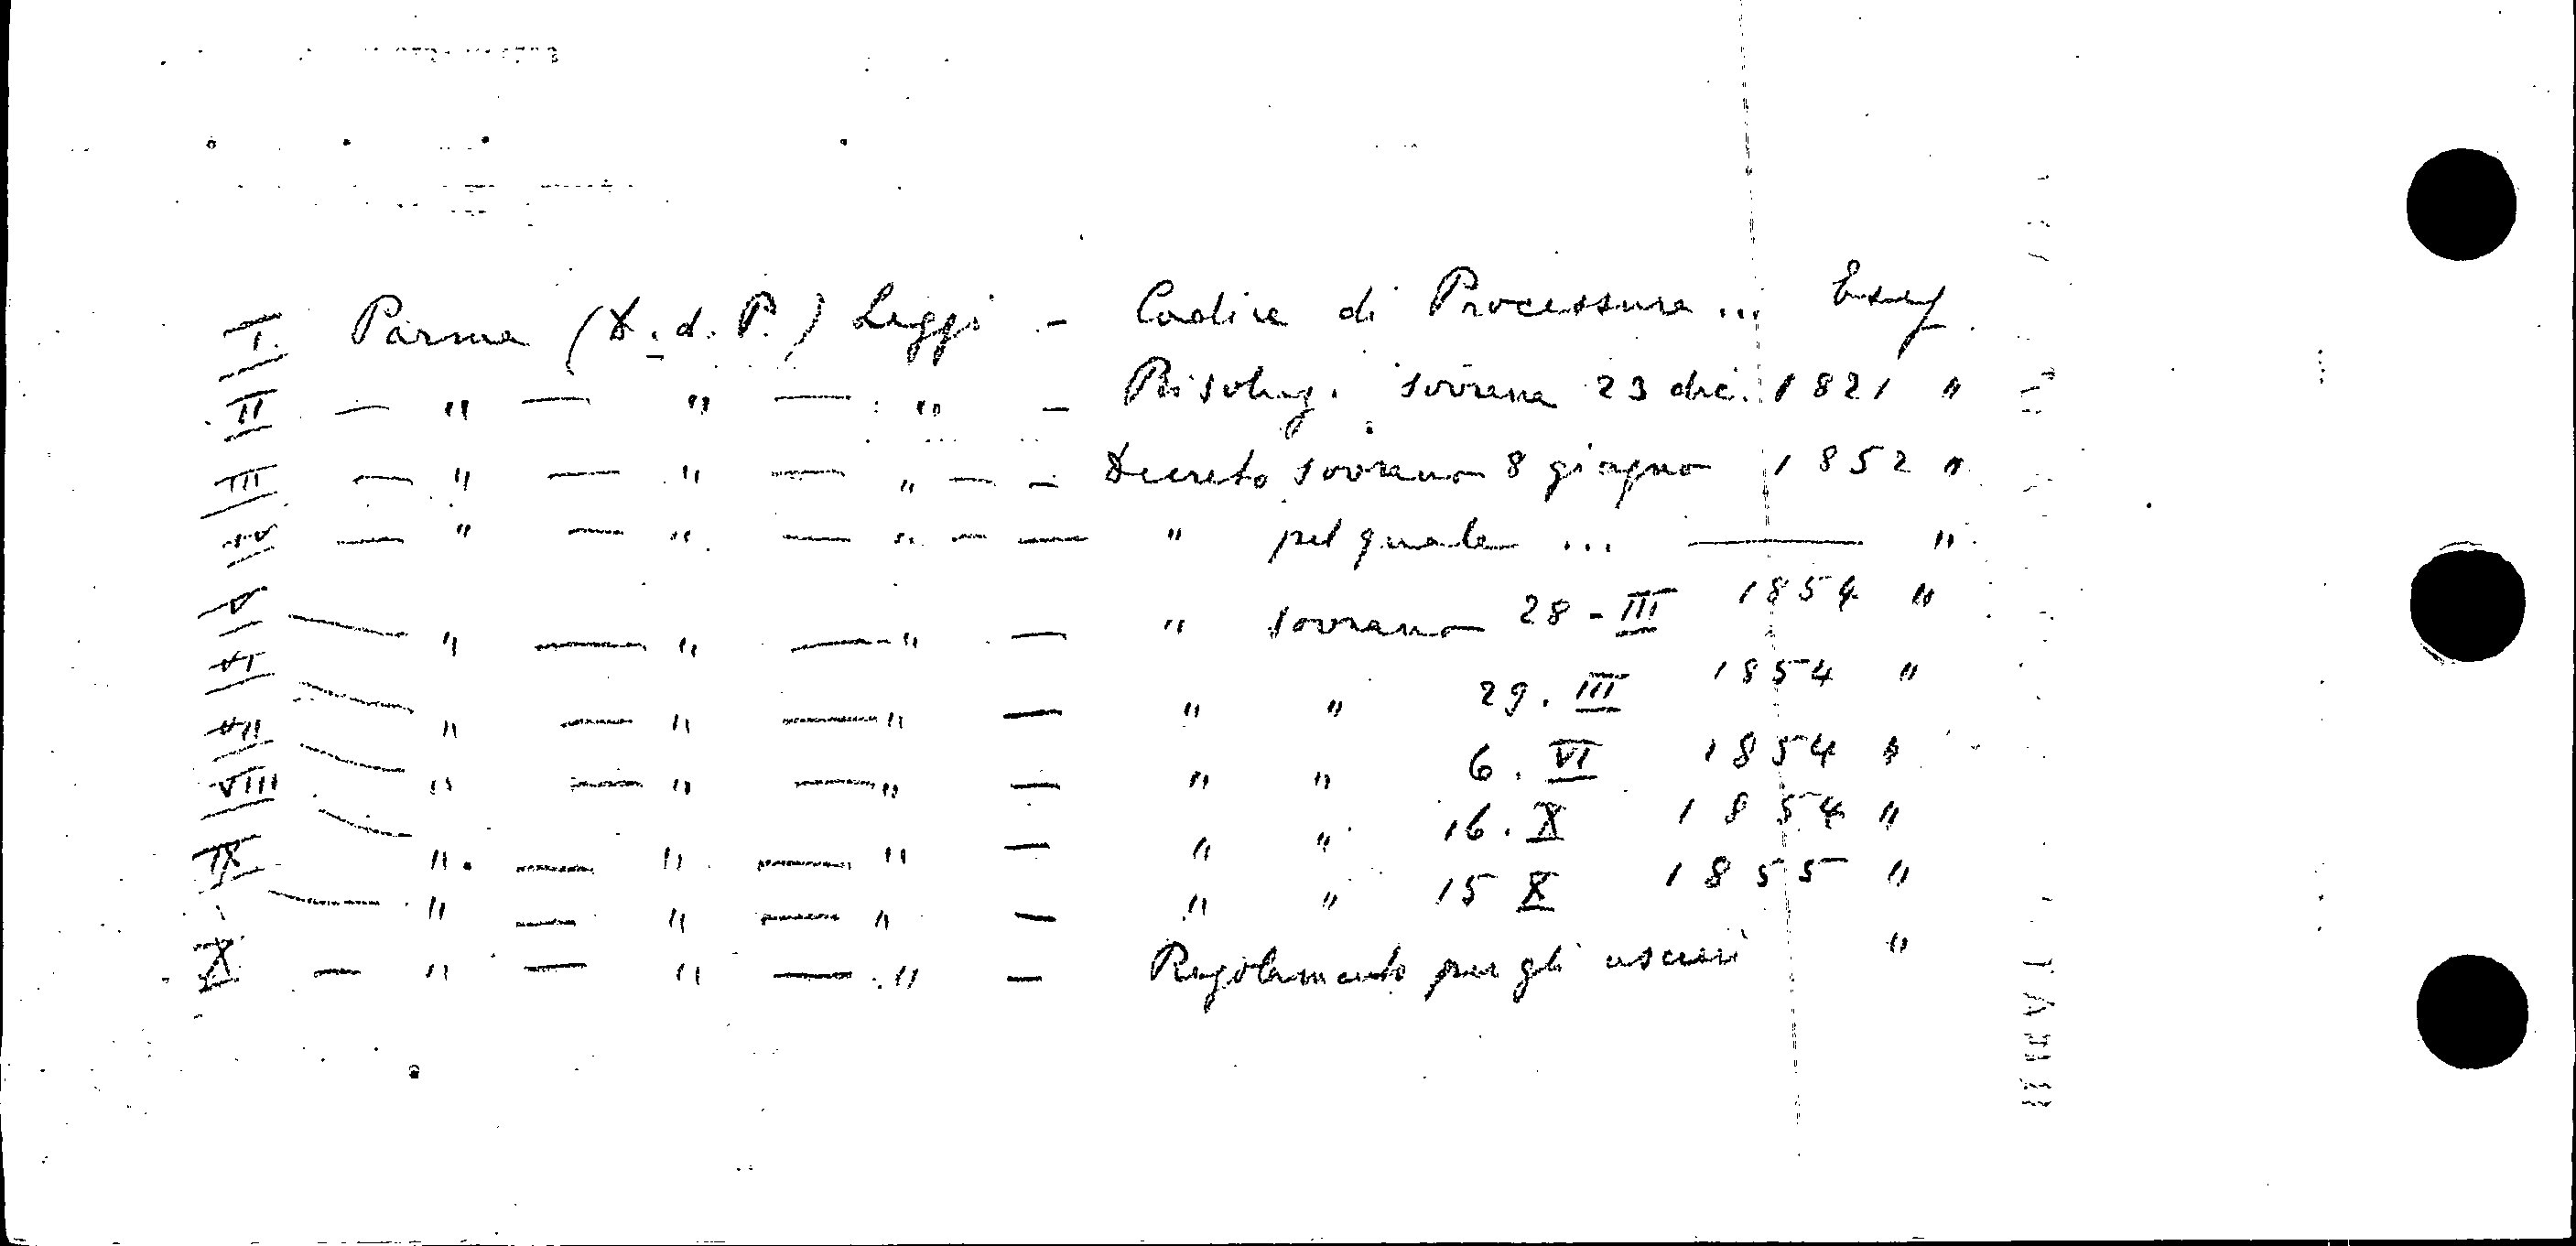 I. Parma (D. d. P.) Leggi - Codice di Processura ...
II — " — " — " - Risoluz. sovrana 23 dic. 1821 "
III — " — " — " — - Decreto sovrano 8 giugno 1852 "
IV — " — " — " — — " pel quale ... — "
V — " — " — " — " sovrano 28 - III 1854 "
VI — " — " — " — " " 29. III 1854 "
VII — " — " — " — " " 6. VI 1854 "
VIII — " — " — " — " " 16. X 1854 "
IX — " — " — " — " " 15 X 1855 "
X — " — " — " — Regolamento per gli uscieri "